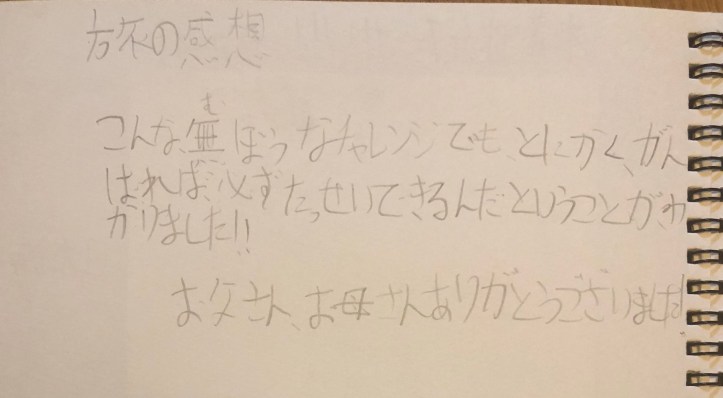 旅の感想
む
こんな、無ぼうなチャレンジでも、とにかく、がん
ばれば、必ずたっせいできるんだということが、わ
かりました!!
お父さん、お母さんありがとうございました!